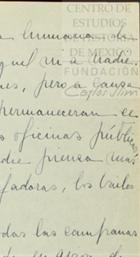 CENTRO DE
ESTUDIOS
DE MEXICO
FUNDACIÓN
Carlos Slim
a humana de
quel ni a nadie
nes, pero a causa
permanecerán ce
s oficinas públic
die piensa más
fadoras, los bailes
odas las campanas